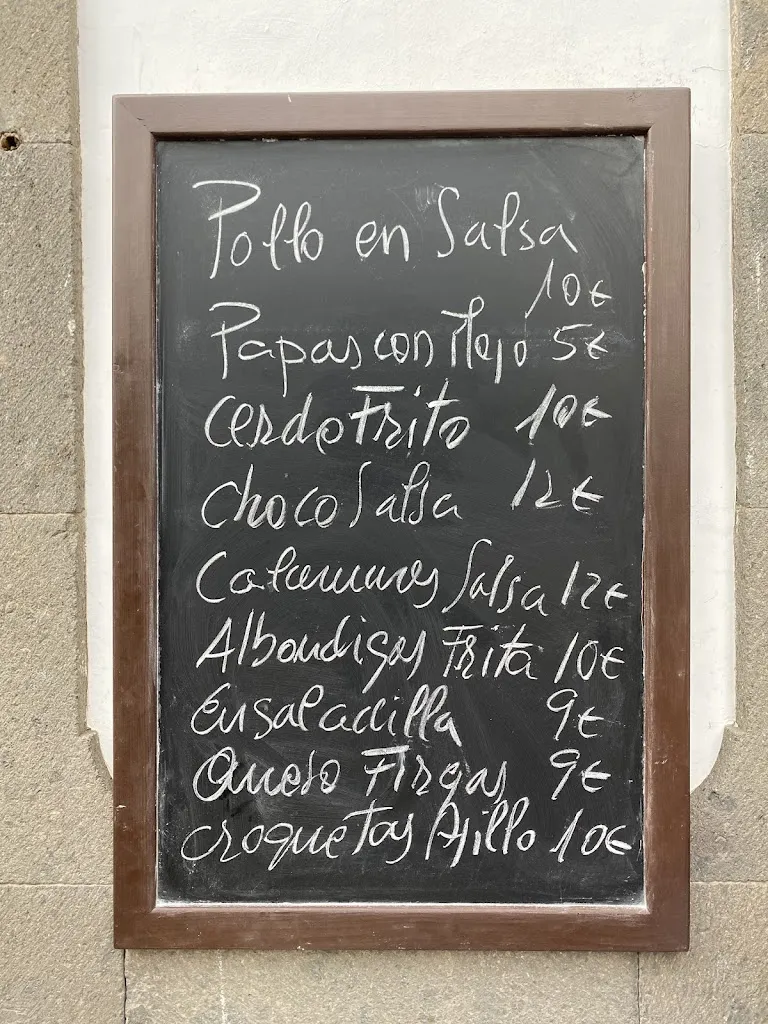 Pollo en Salsa
10€
Papas con Mojo 5€
Cerdo Frito 10€
Choco Salsa 12€
Calamares Salsa 12€
Albondigas Frita 10€
Ensaladilla 9€
Queso Firgas 9€
Croquetas Ajillo 10€